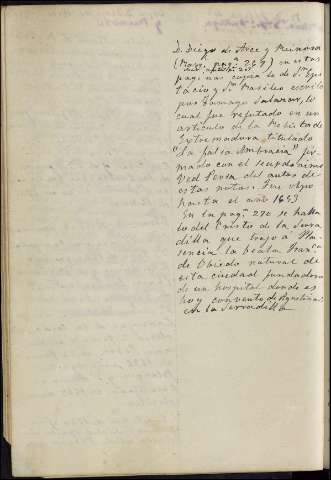 D. Diego de Arce y Reinoso
(Mayo, pagª 257) en estas
paginas copia lo de Sn Epi-
tacio y Sn Basileo escrito
por Tamayo Salazar, lo
cual fue refutado en un
articulo de la Revista de
Extremadura titulado
"La falsa Ambracia" fir-
mado con el seudonimo
del autor de
estas notas. Fue Obpo
hasta el año 1653
En la pagª 270 se habla
lo del Cristo de la Serra
dilla que trajo a Pla-
sencia la beata Franca
de Obiedo natural de
esta ciudad fundadora
de un hospital donde es
hoy convento de Agustinas
en la Serradilla